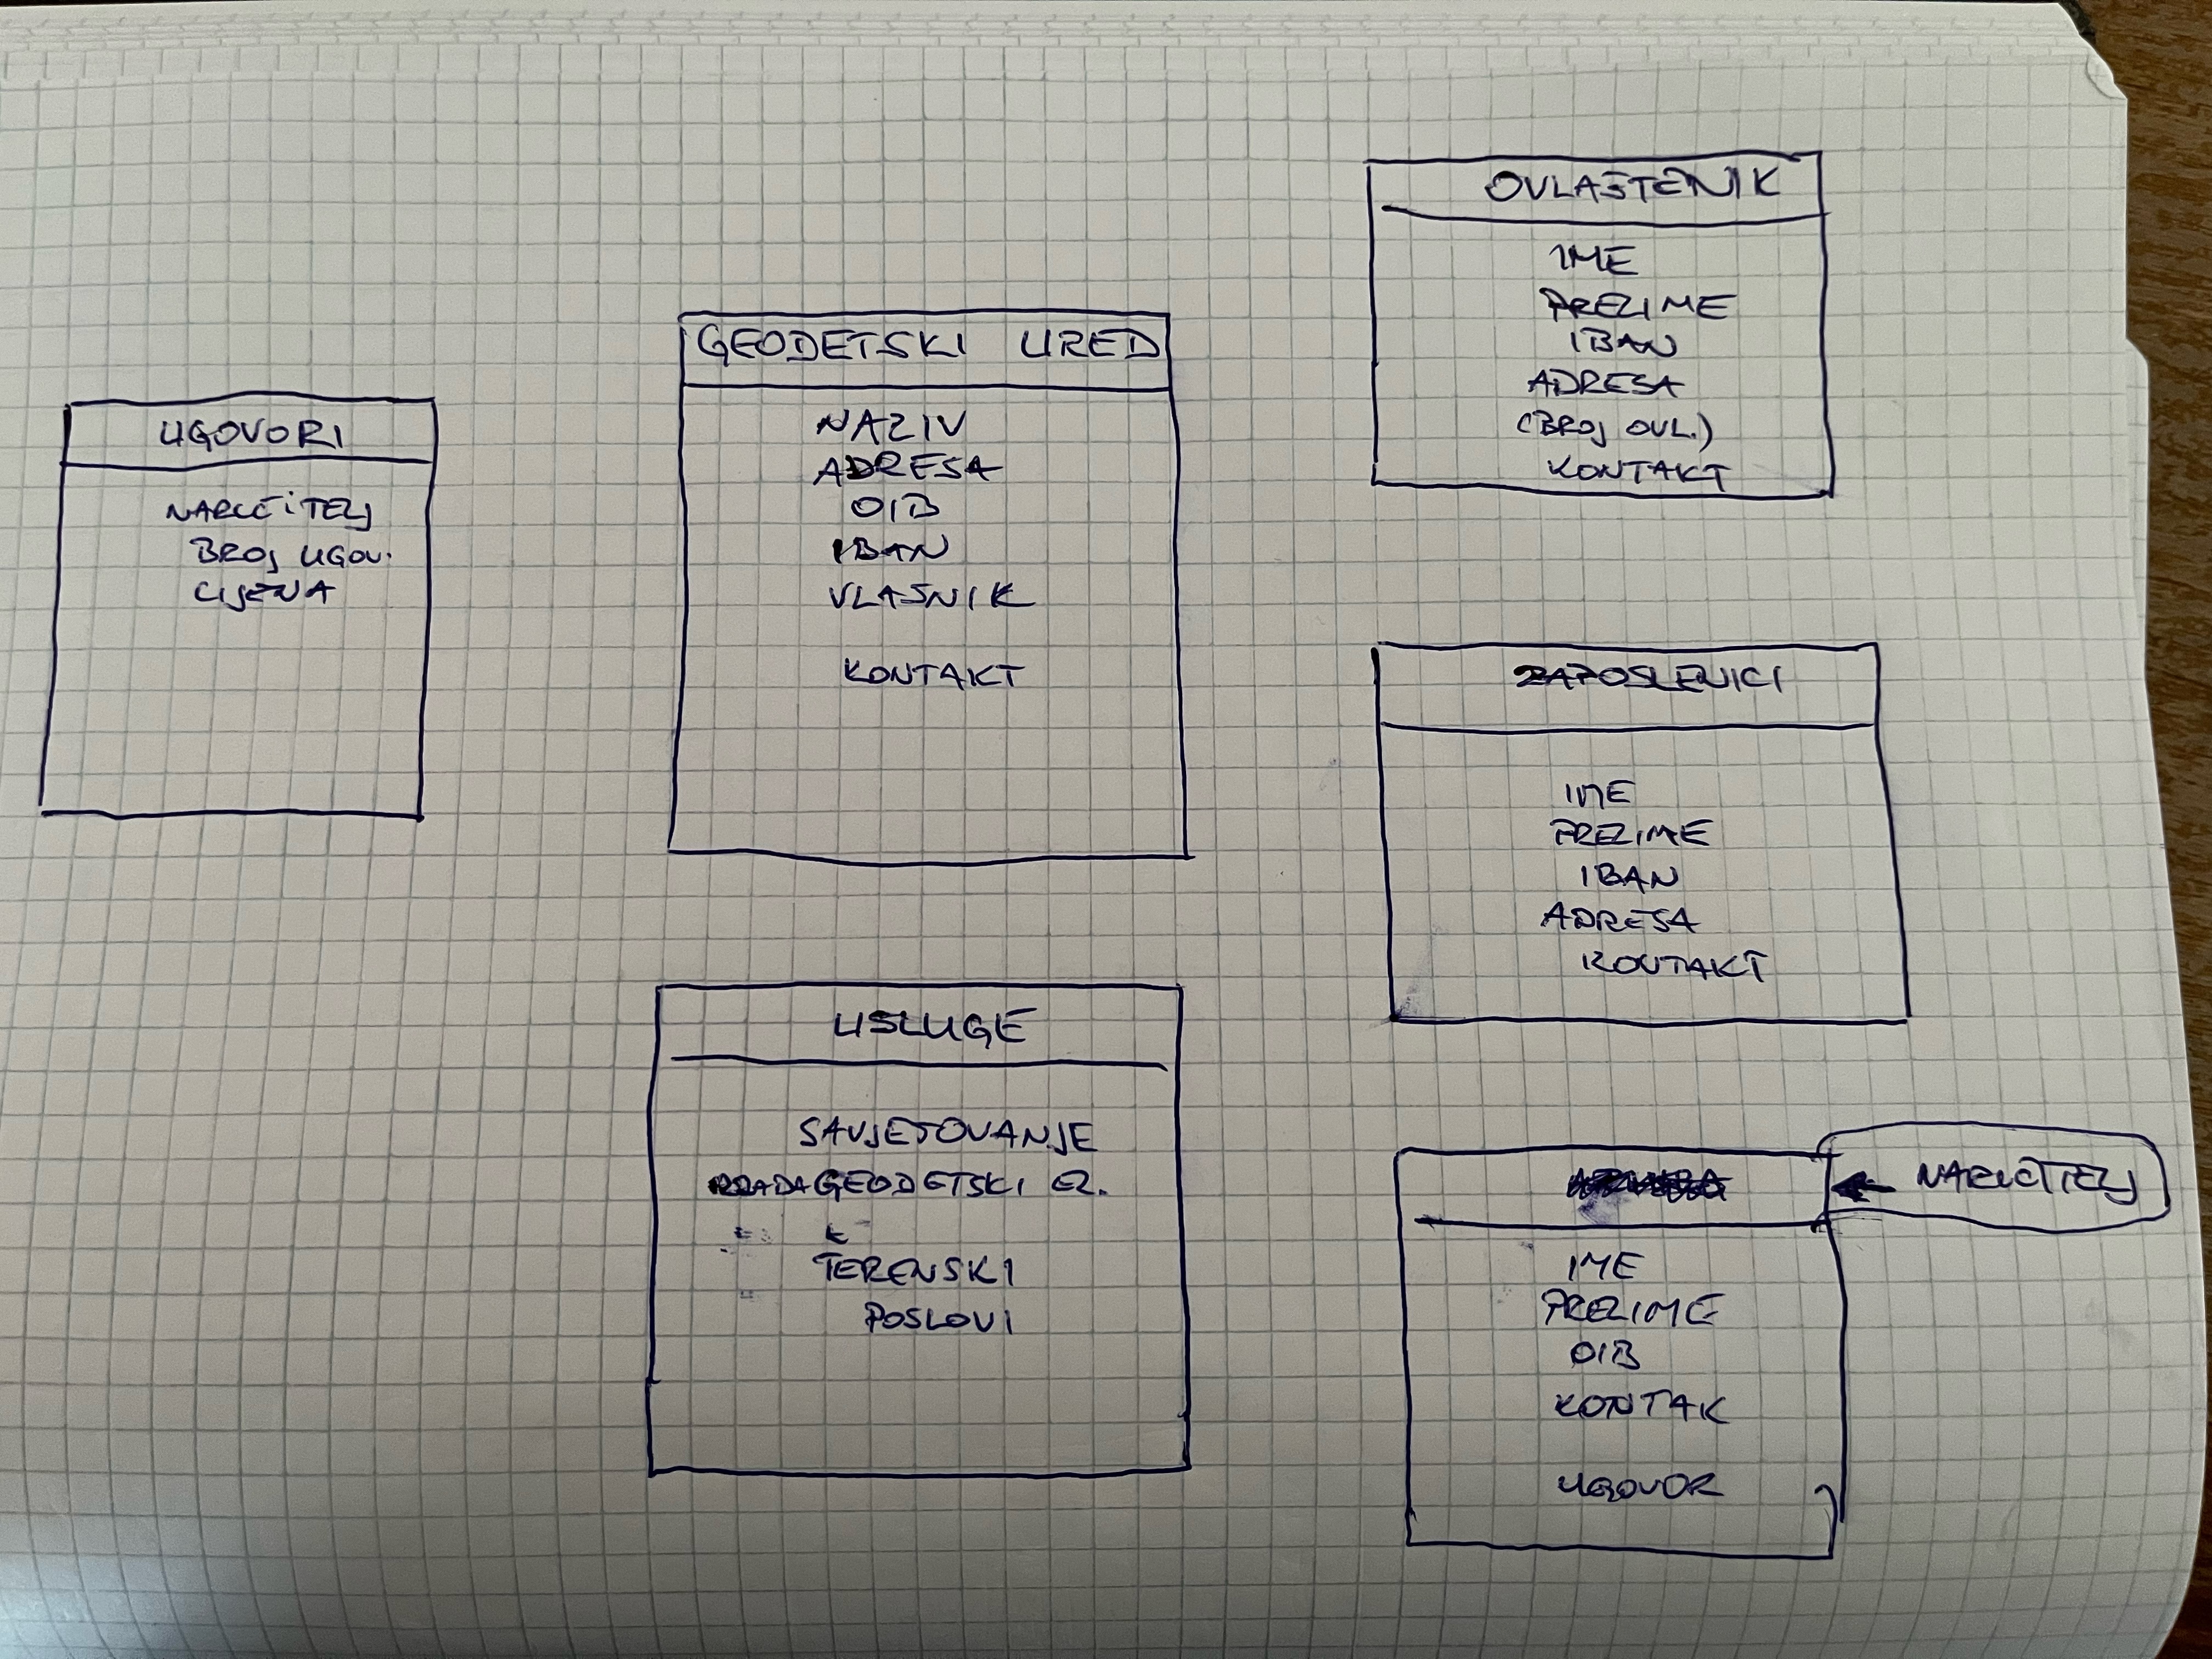 UGOVORI
NARUČITELJ
BROJ UGOV.
CIJENA
GEODETSKI URED
NAZIV
ADRESA
OIB
IBAN
VLASNIK
KONTAKT
USLUGE
SAVJETOVANJE
GEODETSKI E.
TERENSKI
POSLOVI
OVLAŠTENIK
IME
PREZIME
IBAN
ADRESA
(BROJ OVL.)
KONTAKT
ZAPOSLENICI
IME
PREZIME
IBAN
ADRESA
KONTAKT
NARUČITELJ
IME
PREZIME
OIB
KONTAK
UGOVOR